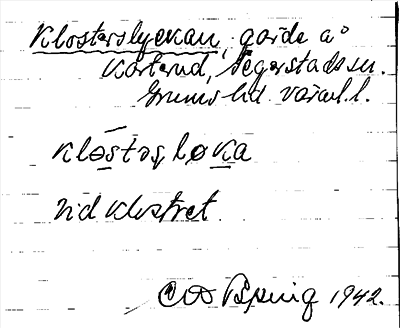 Klosterslyckan, gärde å
Karterud, Segerstads sn.
Grums hd. Värml. l.
klostəs, løka
Vid klostret.
1942.